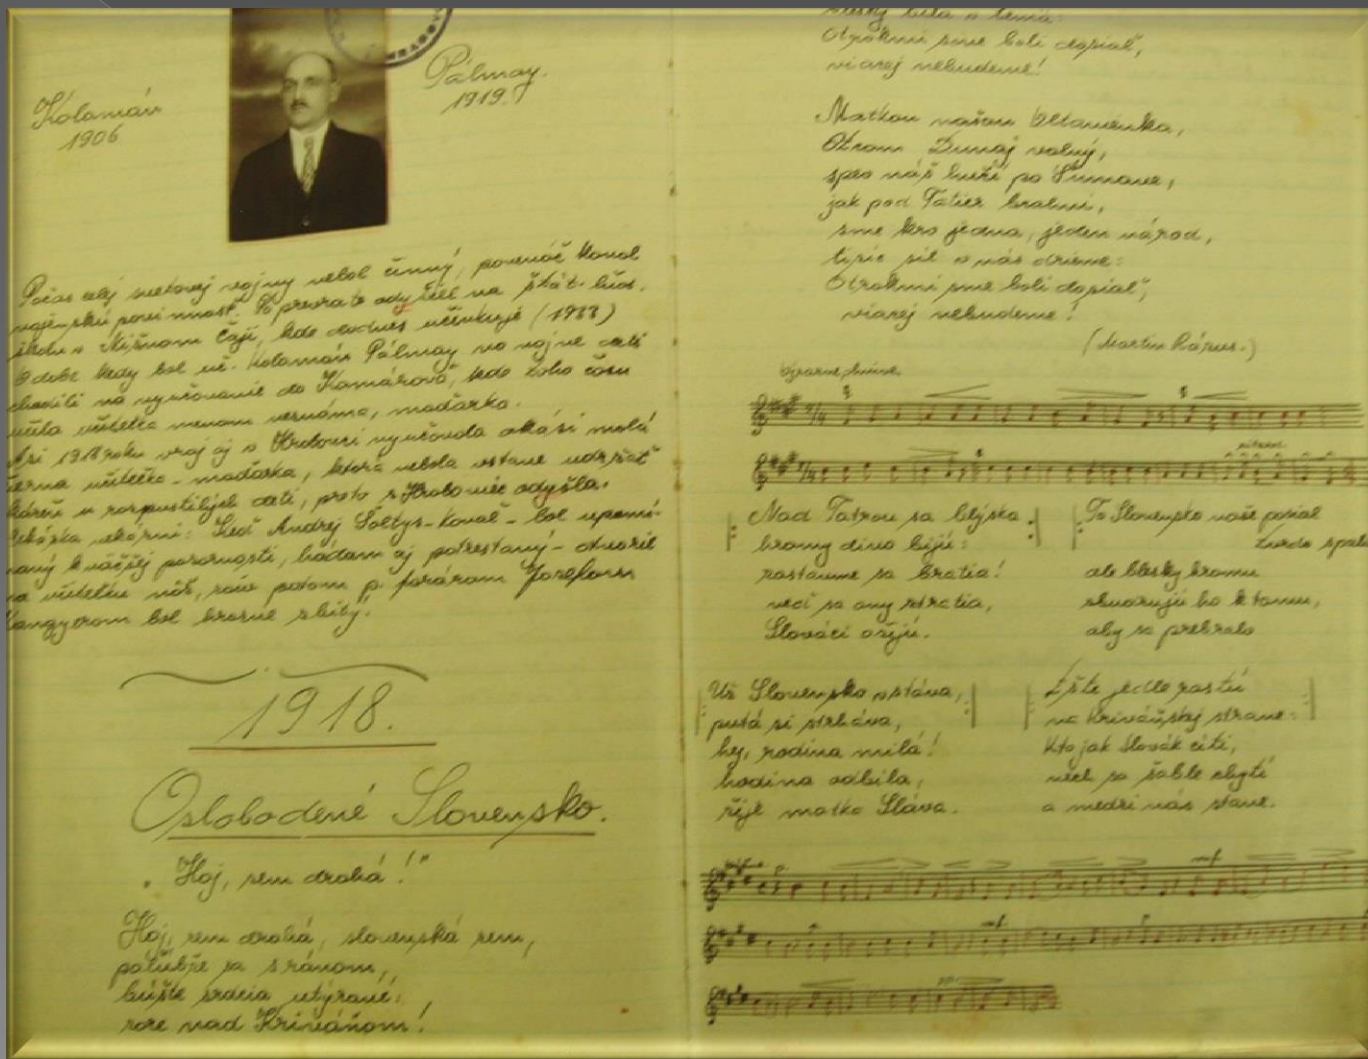 Kolomán
1906
Pálmay.
1919.
Počas celej svetovej vojny nebol činný, ponenáč konal
vojenskú povinnosť. Po prevrate odyšiel na štát. ľud.
školu v Nižnom Čaji, kde dodnes účinkuje (1933)
V dobe kedy bol uč. Kolomán Pálmay na vojne deti
chodili na vyučovanie do Komárová, kde toho času
učila učiteľka menom neznáma, maďarka.
Asi 1918 roku vraj aj v Hrabovci vyučovala akási malá
čierna učiteľka - maďarka, ktorá nebola vstave udržať
kázeň u rozpustilých detí, preto z Hrabovec odyšla.
Andrej Šoltys - Kovaľ - bol upomí-
naný k väčšej pozornosti, hádam aj potrestaný - otvoril
na učiteľku nôž, potom p. farárom Jozefom
bol hrozne zbitý.
1918.
Oslobodené Slovensko.
„Hoj, zem drahá!"
Hoj, zem drahá, slovenská zem,
potúžže sa s ránom,
búšte srdcia utýrané,
zore nad Kriváňom!
Otrokmi sme boli dopiaľ,
viacej nebudeme!
Matkou našou Vltavěnka,
Otcom Dunaj voľný,
spev náš hučí po Šumave,
jak pod Tatier hralmi,
sme krv jedna, jeden národ,
tisíc síl v nás drieme:
Otrokmi sme boli dopiaľ,
viacej nebudeme!
(Martin Rázus.)
Nad Tatrou sa blýska
hromy divo bijú:
zastavme sa bratia!
veď sa ony ztratia,
Slováci ožijú.
To Slovensko naše posiaľ
tvrdo spalo
ale blesky hromu
vburujú ho k tomu,
aby sa prebralo
Už Slovensko vstáva,
putá si strháva,
hej, rodina milá!
hodina odbila,
žije matka Sláva.
Ešte jedle rastú
na Kriváňskej strane:
Kto jak Slovák cíti,
nech sa šable chytí
a medzi nás stane.